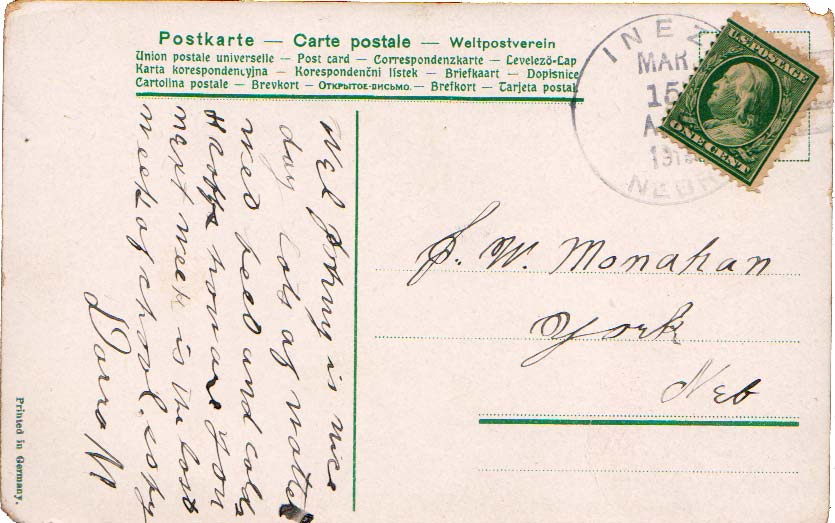 Postkarte — Carte postale — Weltpostverein
Union postale universelle — Post card — Correspondenzkarte — Levelező-Lap
Karta korespondencyjna — Korespondenční lístek — Briefkaart — Dopisnice
Cartolina postale — Brevkort — Открытое письмо. — Brefkort — Tarjeta postal.
INEZ
MAR.
15
NEBR
U.S. POSTAGE
ONE CENT
J. W. Monahan
York
Neb
Wel Johny is nice
day lots of watter
wed feel and cold
how are you
next week is the last
week of chool.
Printed in Germany.